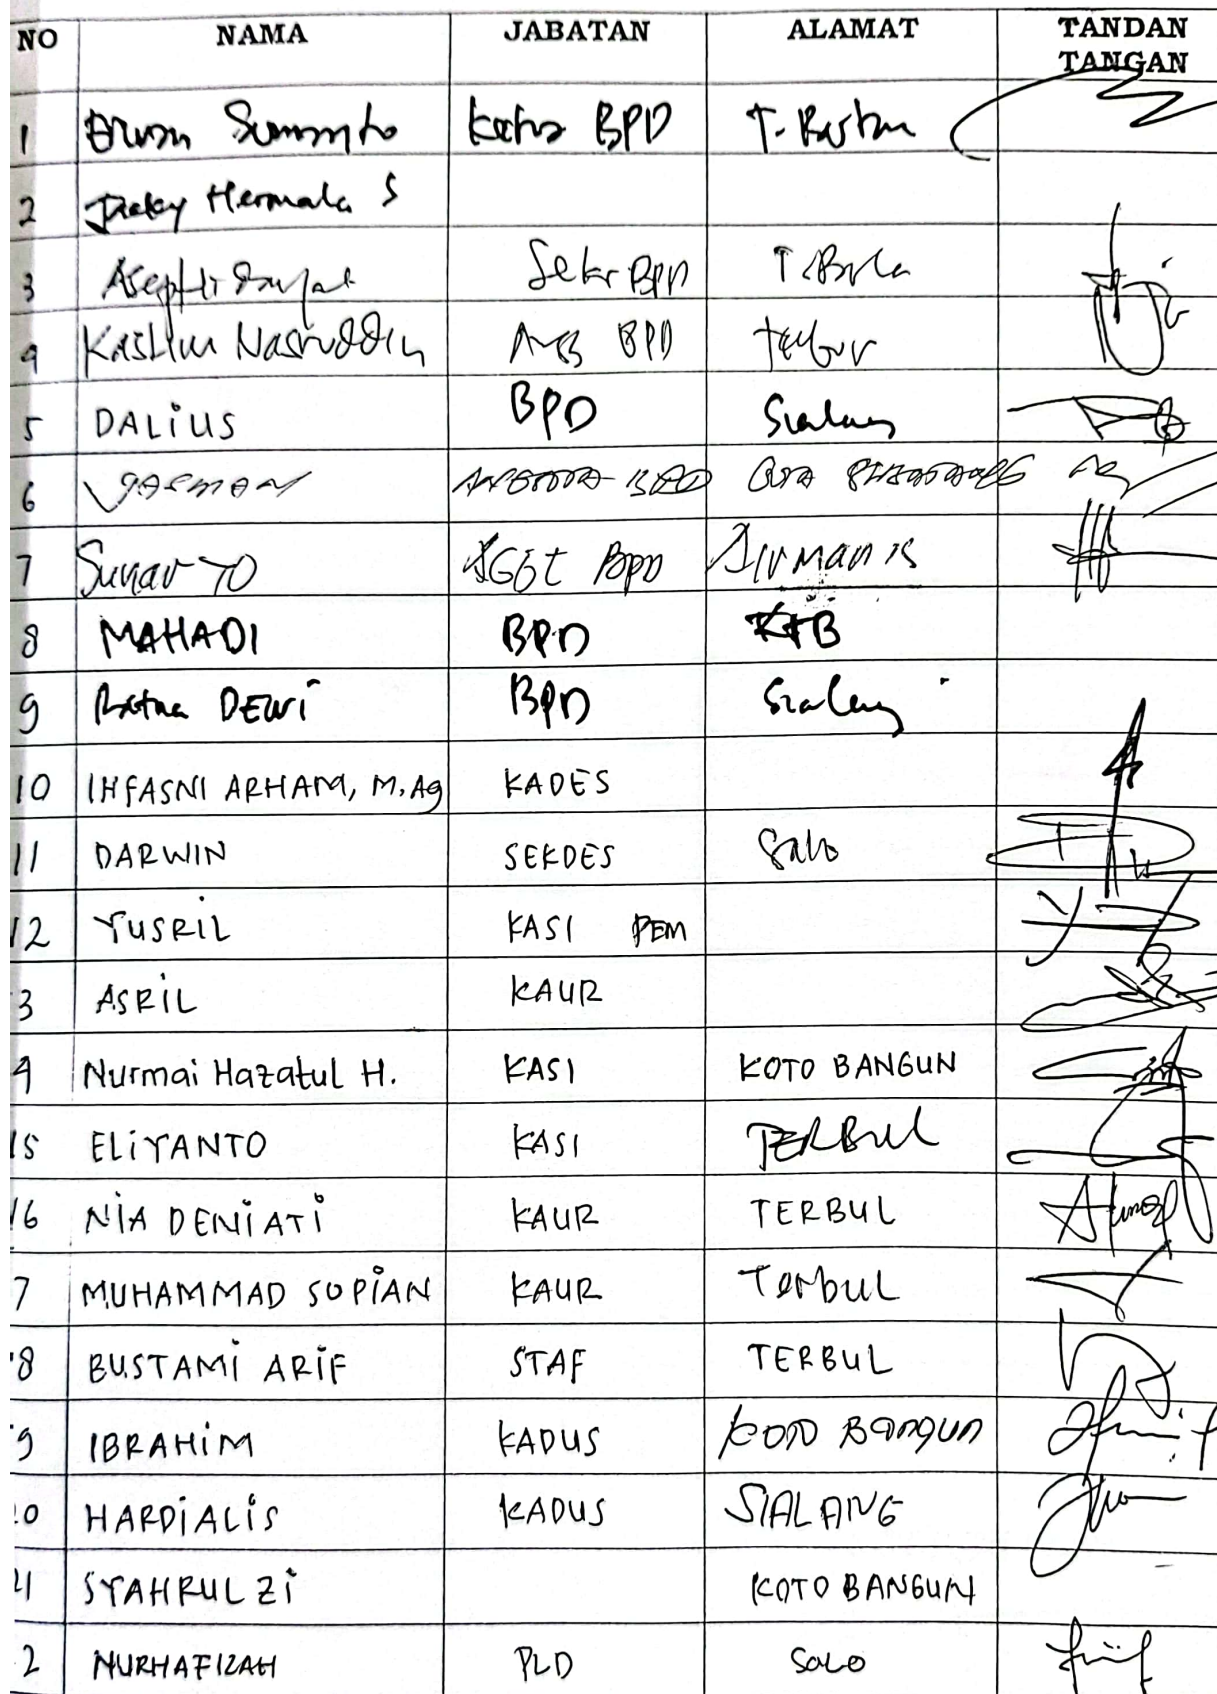 NO NAMA JABATAN ALAMAT TANDAN TANGAN
1 BPD
2 Hermala S
3 Sekr BPD
4 Nasruddin BPD
5 DALIUS BPD Sialang
6 YASMAN ANGGOTA BPD
7 Sunar YO BPD AIR Manis
8 MAHADI BPD KTB
9 Ratna DEWI BPD Sialang
10 IHFASNI ARHAM, M.Ag KADES
11 DARWIN SEKDES Salo
12 YUSRIL KASI PEM
3 ASRIL KAUR
4 Nurmai Hazatul H. KASI KOTO BANGUN
15 ELIYANTO KASI TERBUL
16 NIA DENIATI KAUR TERBUL
7 MUHAMMAD SOPIAN KAUR Terbul
8 BUSTAMI ARIF STAF TERBUL
9 IBRAHIM KADUS KOTO BANGUN
0 HARDIALIS KADUS SIALANG
21 SYAHRUL ZI KOTO BANGUN
2 NURHAFIZAH PLD SALO